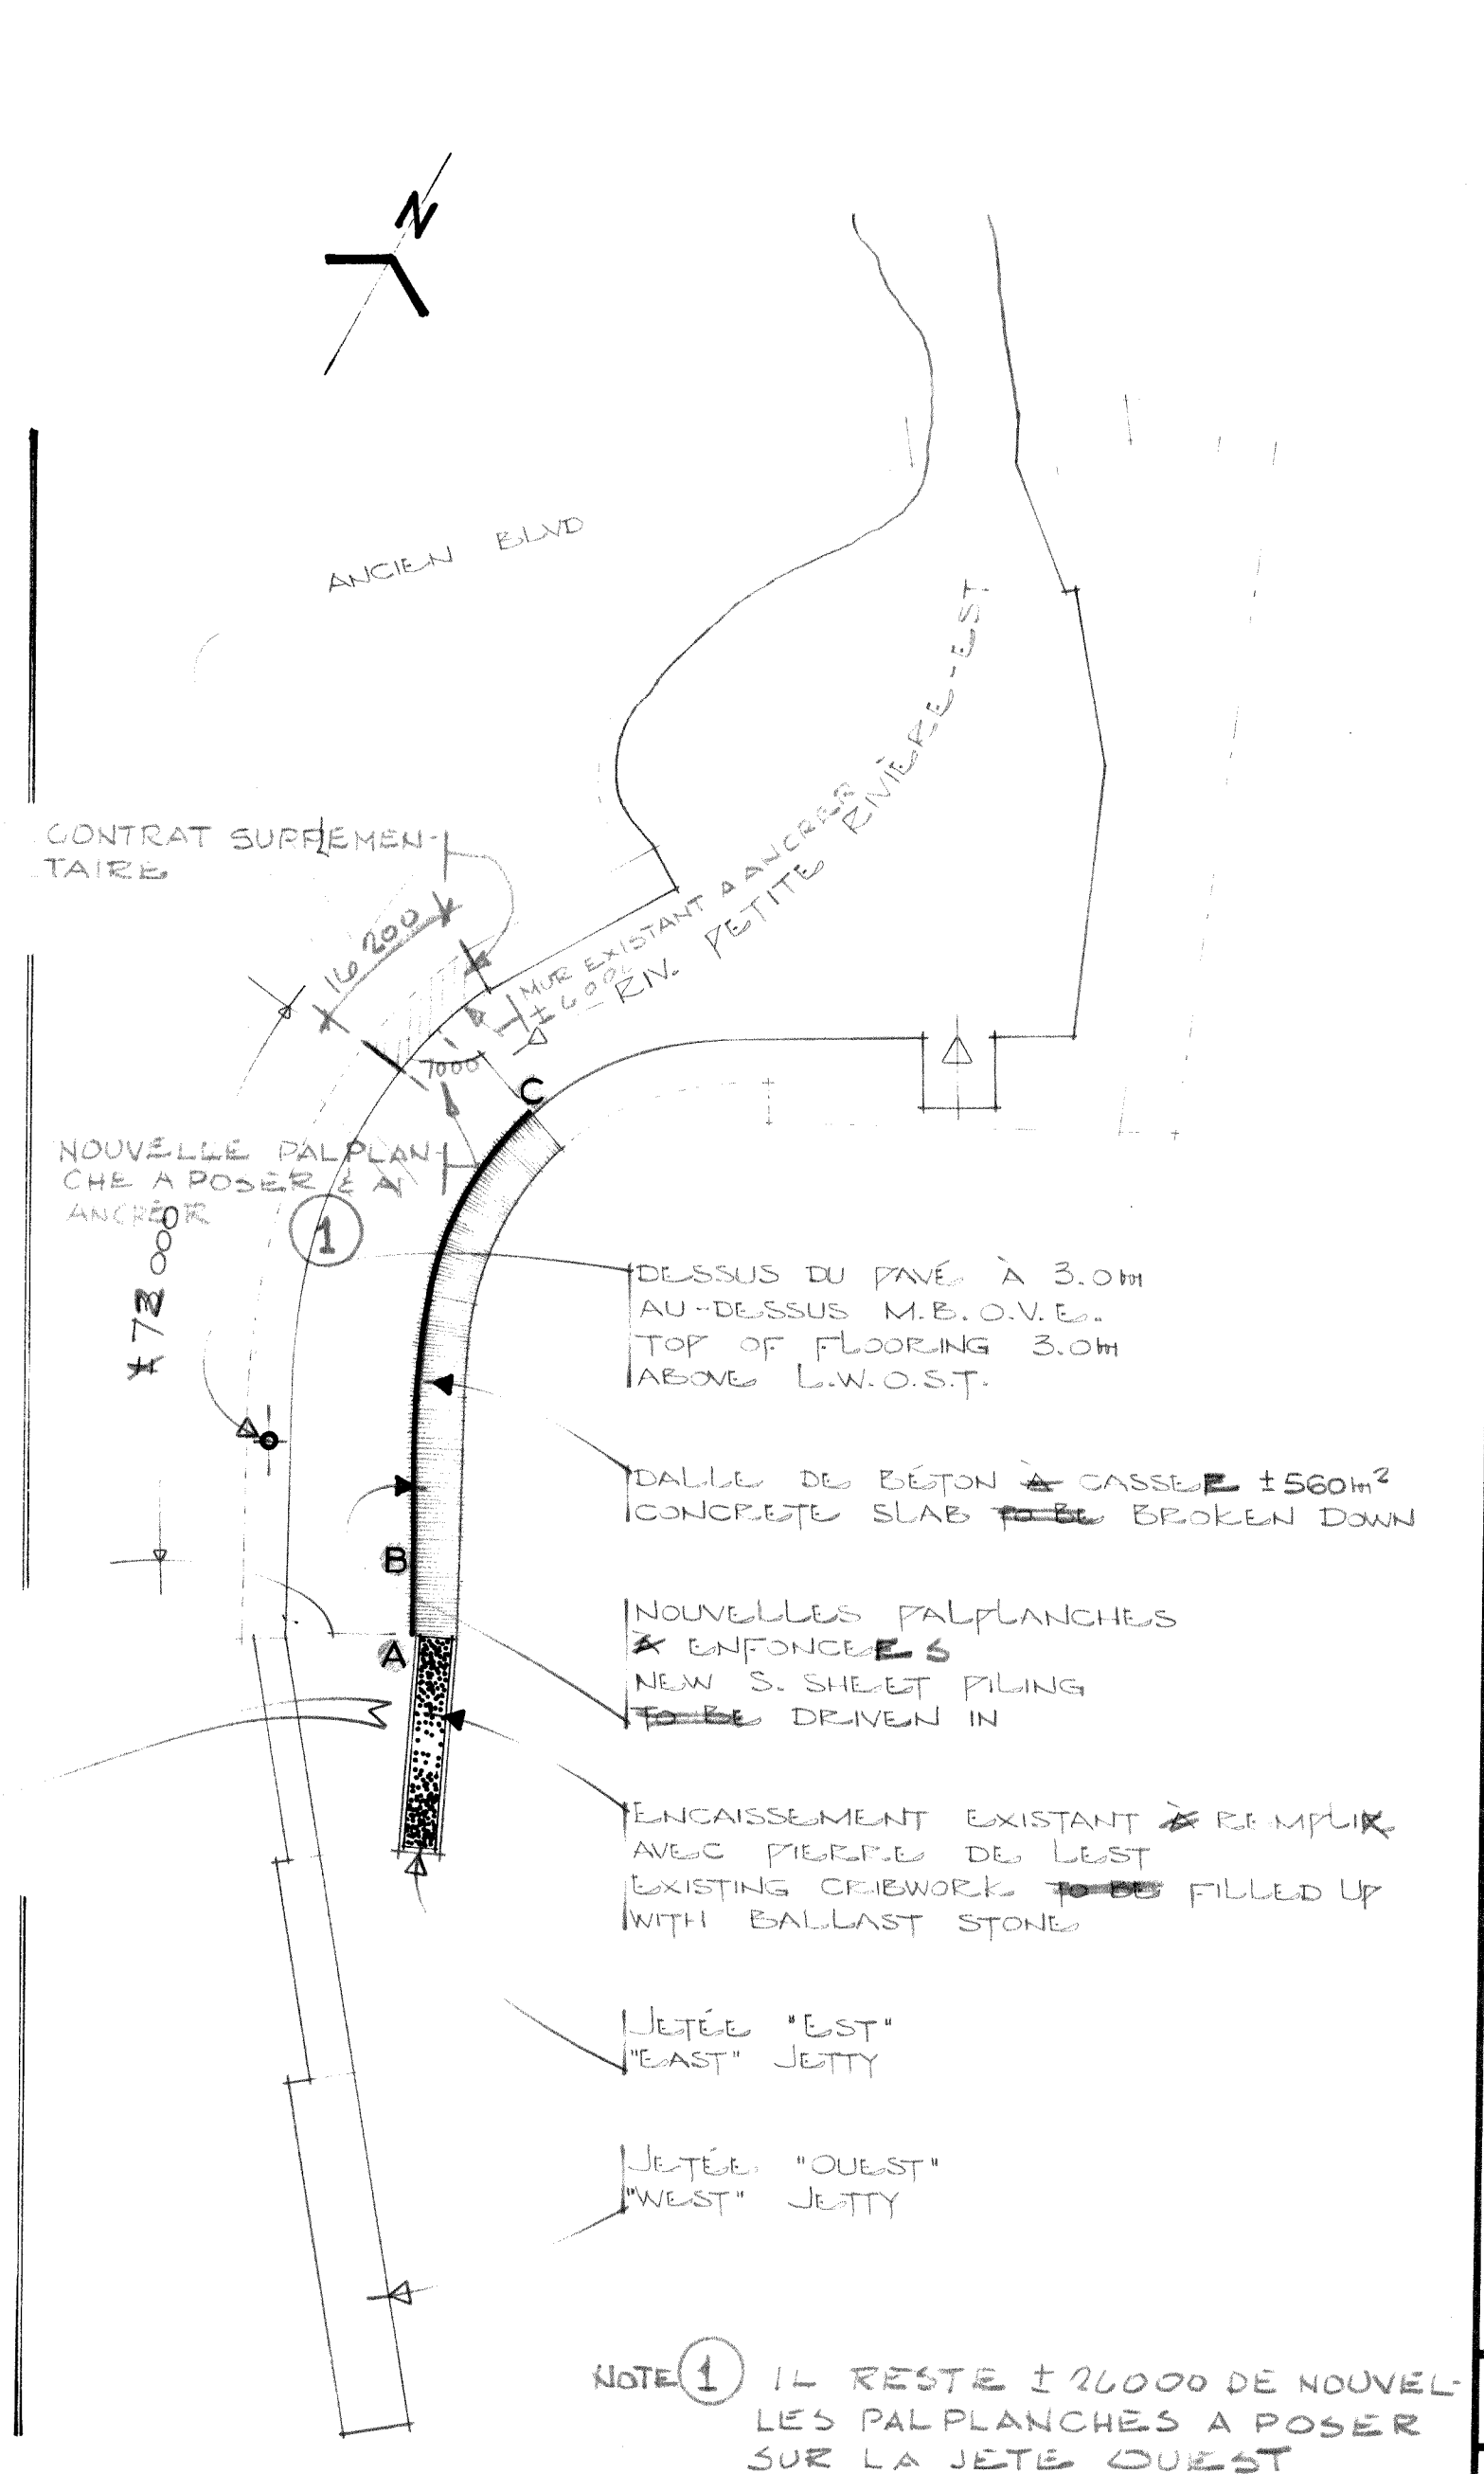 N
ANCIEN BLVD
CONTRAT SUPPLEMEN-
TAIRE
16 200
MUR EXISTANT A ANCRER
± 600
RIV. PETITE RIVIÈRE-EST
7000
C
NOUVELLE PALPLAN-
CHE A POSER & A
ANCRER
1
73 000
DESSUS DU PAVÉ À 3.0m
AU-DESSUS M.B.O.V.E.
TOP OF FLOORING 3.0m
ABOVE L.W.O.S.T.
DALLE DE BÉTON À CASSER ±560m²
CONCRETE SLAB TO BE BROKEN DOWN
B
A
NOUVELLES PALPLANCHES
À ENFONCEES
NEW S. SHEET PILING
TO BE DRIVEN IN
ENCAISSEMENT EXISTANT À REMPLIR
AVEC PIERRE DE LEST
EXISTING CRIBWORK TO BE FILLED UP
WITH BALLAST STONE
JETÉE "EST"
"EAST" JETTY
JETÉE "OUEST"
"WEST" JETTY
NOTE 1 IL RESTE ± 26000 DE NOUVEL-
LES PALPLANCHES A POSER
SUR LA JETE OUEST